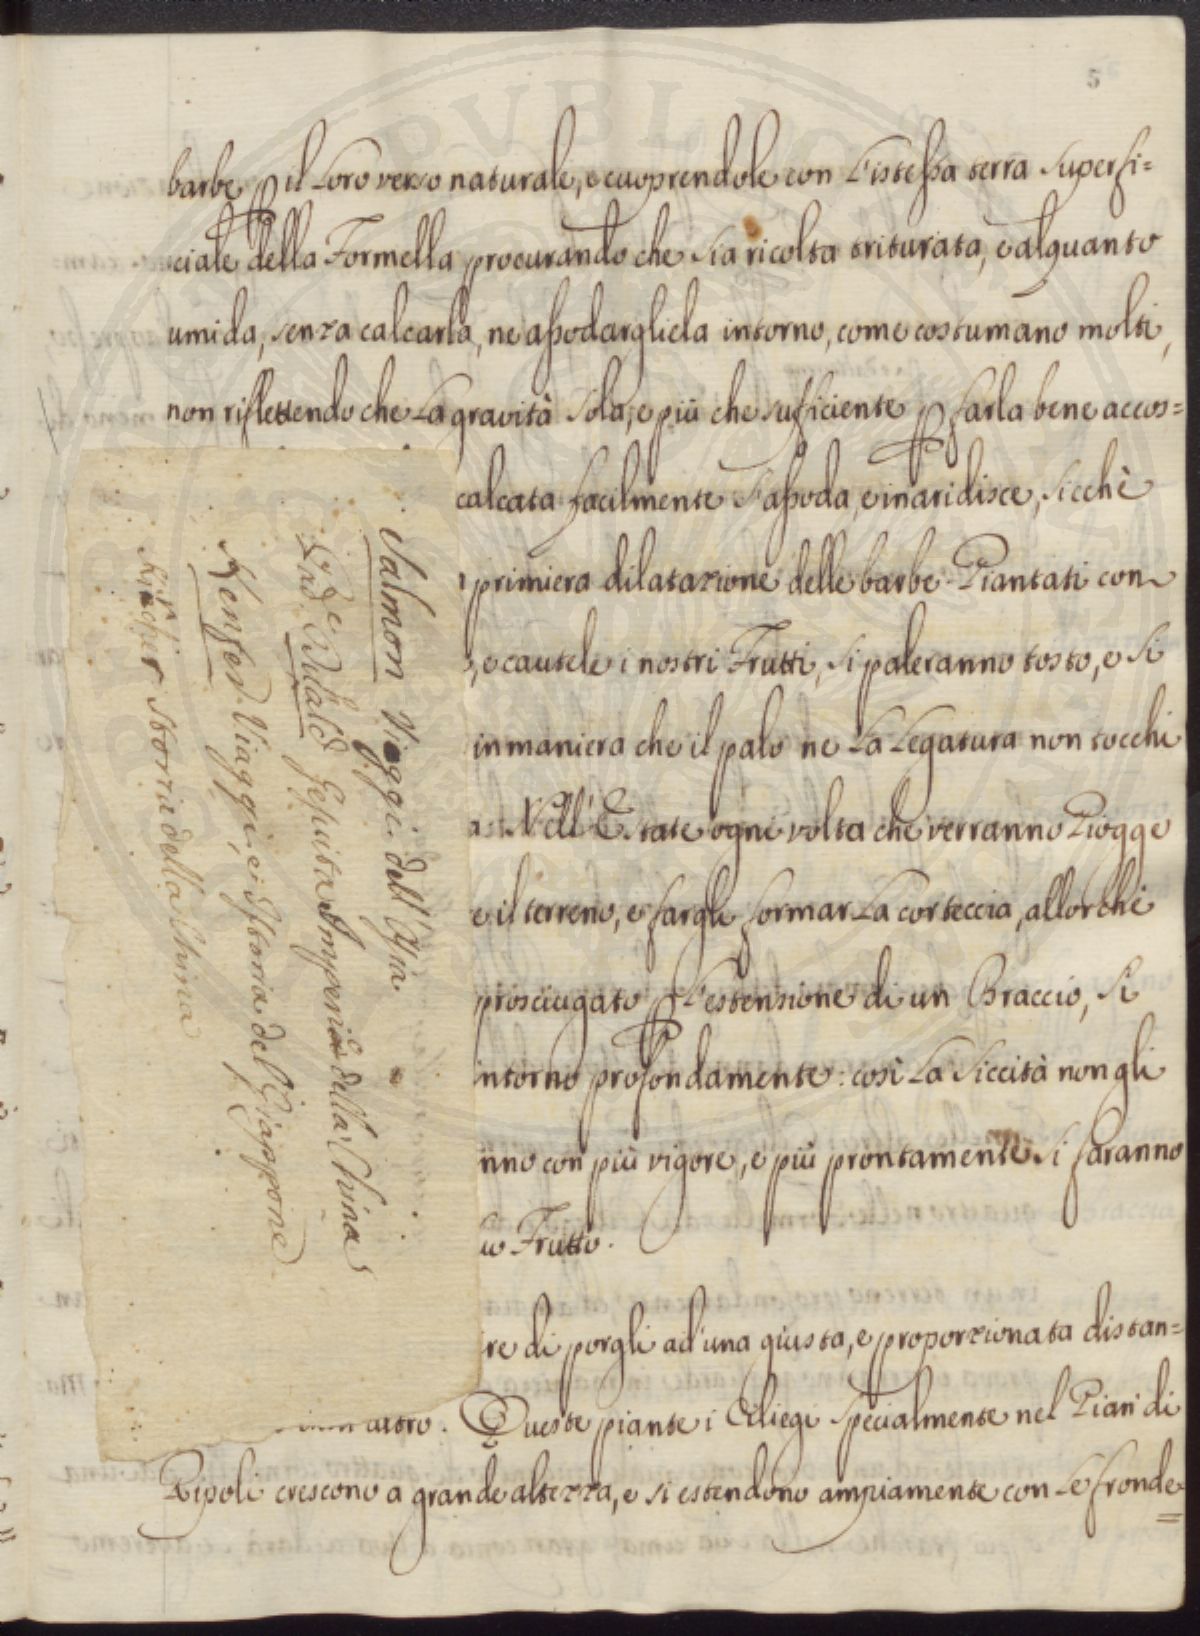 5
barbe ꝑ il Loro verso naturale, e cuoprendole con L'istessa terra superfi=
ciale della Formella procurando che sia ricolta triturata, e alquanto
umida, senza calcarla, ne assodargliela intorno, come costumano molti,
non riflettendo che La gravità sola, e più che suficiente ꝑ farla bene accos=
calcata facilmente s'assoda, e inaridisce, sicchè
primiera dilatazione delle barbe. Piantati con
, e cautele i nostri Frutti, si paleranno tosto, e si
in maniera che il palo ne La Legatura non tocchi
a. Nell'Estate ogni volta che verranno Piogge
e il terreno, e fargli formar La corteccia, allorchè
prosciugato ꝑ L'estensione di un Braccio, si
ntorno profondamente: così La siccità non gli
nno con più vigore, e più prontamente si faranno
io Frutto.
re di porgli ad'una giusta, e proporzionata distan=
altro. Queste piante i Ciliegi specialmente nel Pian di
Ripoli crescono a grande altezza, e si estendono ampiamente con Le fronde
Salmon Viaggi dell'Asia
Pad.e Duald Gesuita Imperio della China
Kempfer Viaggi, ei Istoria del Giappone
Kircher Storia della China